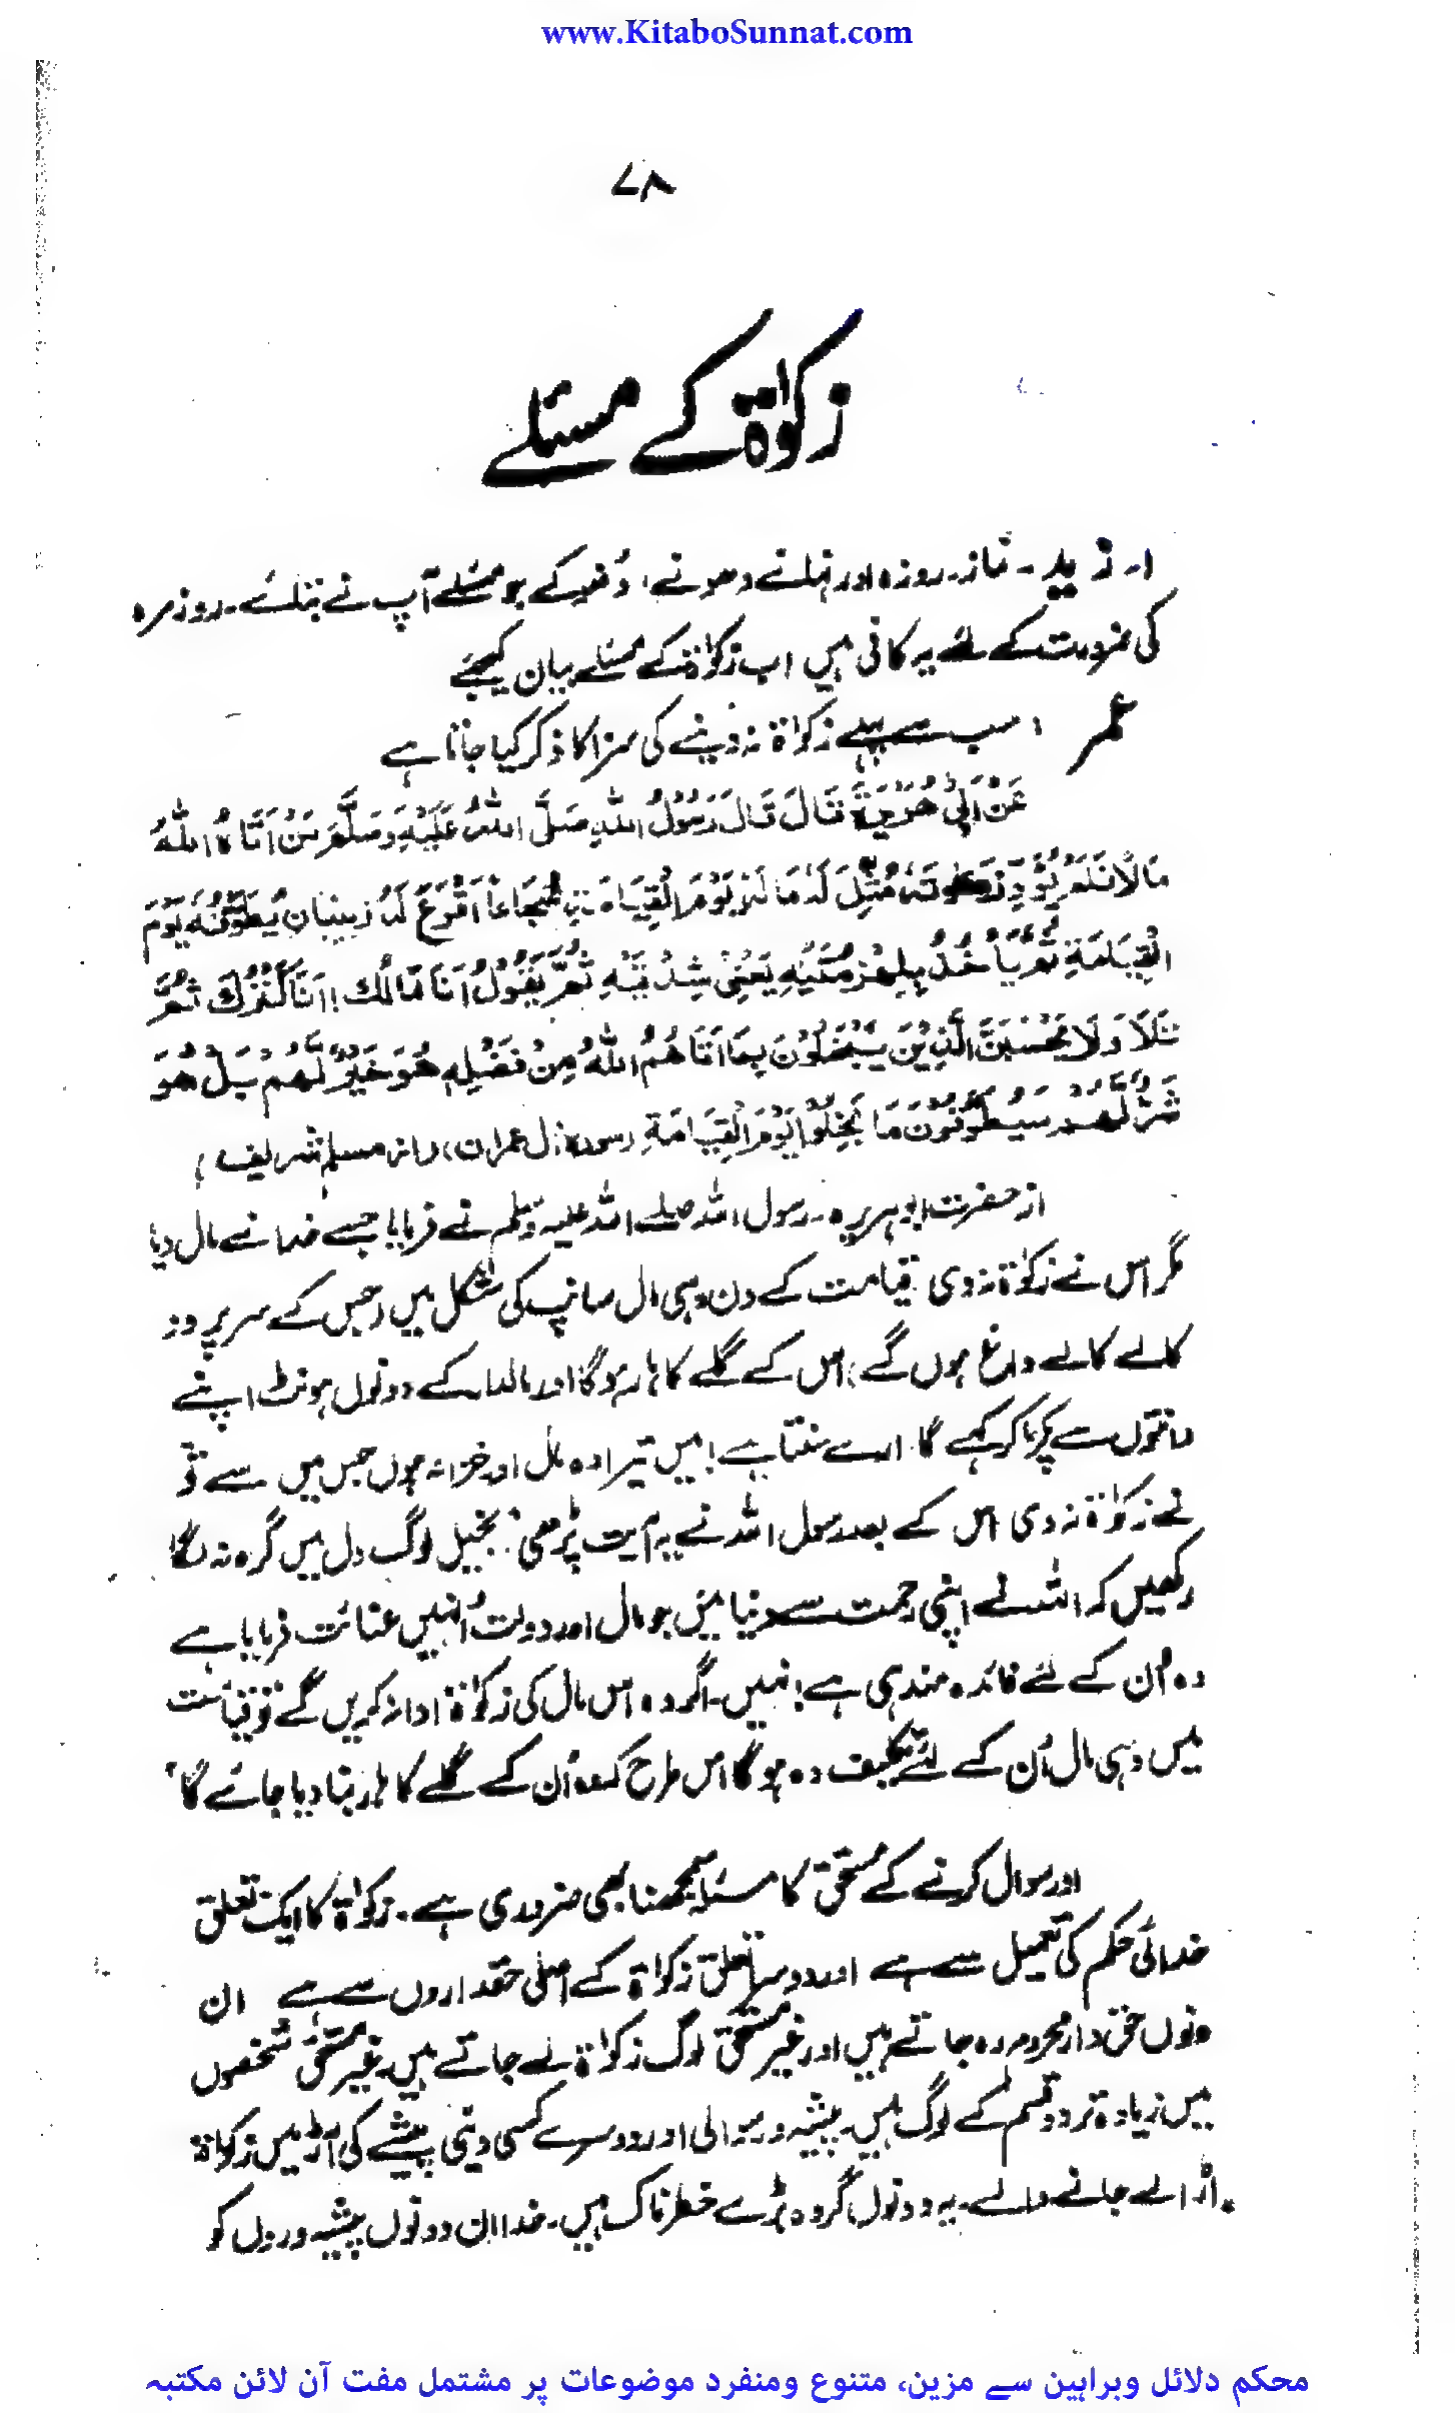 www.KitaboSunnat.com
۷۸
زکوٰۃ کے مسئلے
۱۔ زید۔ نماز۔ روزہ اور نہانے دھونے، وُضو کے جو مسئلے آپ نے بتلائے۔ روزمرہ
کی ضرورت کے لئے یہ کافی ہیں اب زکوٰۃ کے مسئلے بیان کیجئے
عمر : سب سے پہلے زکوٰۃ نہ دینے کی سزا کا ذکر کیا جاتا ہے
عَنْ اَبِیْ هُرَيْرَةَ قَالَ قَالَ رَسُوْلُ اللهِ صَلَّى اللهُ عَلَيْهِ وَسَلَّمَ مَنْ اَتَاهُ اللهُ
مَالًا فَلَمْ يُؤَدِّ زَكوٰتَهٗ مُثِّلَ لَهٗ مَالُهٗ يَوْمَ الْقِيَامَةِ شُجَاعًا اَقْرَعَ لَهٗ زبيبتان يُطَوَّقُهٗ يَوْمَ
الْقِيَامَةِ ثُمَّ يَأْخُذُ بِلِهْزِمَتَيْهِ يَعْنِیْ شِدْقَيْهِ ثُمَّ يَقُوْلُ اَنَا مَالُكَ! اَنَا كَنْزُكَ ثُمَّ
تَلَا وَلَا يَحْسَبَنَّ الَّذِيْنَ يَبْخَلُوْنَ بِمَا اَتَاهُمُ اللهُ مِنْ فَضْلِهٖ هُوَ خَيْرٌ لَّهُمْ بَلْ هُوَ
شَرٌّ لَّهُمْ سَيُطَوَّقُوْنَ مَا بَخِلُوْا يَوْمَ الْقِيَامَةِ (سورہ آل عمران) (از مسلم شریف)
از حضرت ابو ہریرہ۔ رسول اللہ صلے اللہ علیہ وسلم نے فرمایا جسے خدا نے مال دیا
مگر اس نے زکوٰۃ نہ دی قیامت کے دن وہی مال سانپ کی شکل میں (جس کے سر پر دو
کالے کالے داغ ہوں گے) اس کے گلے کا ہار ہوگا اور مالدار کے دونوں ہونٹ اپنے
دانتوں سے پکڑ کر کہے گا۔ ارے سنتا ہے! میں تیرا وہ مال اور خزانہ ہوں جس میں سے تُو
نے زکوٰۃ نہ دی اس کے بعد رسول اللہ نے یہ آیت پڑھی "بخیل لوگ دل میں گرہ نہ لگا
رکھیں کہ اللہ نے اپنی رحمت سے دنیا میں جو مال اور دولت اُنہیں عنائت فرمایا ہے
وہ اُن کے لئے فائدہ مند ہی ہے! نہیں۔ اگر وہ اس مال کی زکوٰۃ ادا نہ کریں گے تو قیامت
میں وہی مال اُن کے لئے تکلیف دہ ہوگا اس طرح کہ وہ اُن کے گلے کا ہار بنا دیا جائے گا"
اور سوال کرنے کے مستحق کا مسئلہ سمجھنا بھی ضروری ہے۔ زکوٰۃ کا ایک تعلق
خدائی حکم کی تعمیل سے ہے اور دوسرا تعلق زکوٰۃ کے اصلی حقداروں سے ہے ان
دنوں حق دار محروم رہ جاتے ہیں اور غیر مستحق لوگ زکوٰۃ لے جاتے ہیں۔ غیر مستحق شخصوں
میں زیادہ تر دو قسم کے لوگ ہیں۔ پیشہ ور سوالی اور دوسرے کسی دینی پیشے کی آڑ میں زکوٰۃ
اُڑا لے جانے والے۔ یہ دونوں گروہ بڑے خطرناک ہیں۔ خدا ان دونوں پیشہ وروں کو
محکم دلائل وبراہین سے مزین، متنوع ومنفرد موضوعات پر مشتمل مفت آن لائن مکتبہ